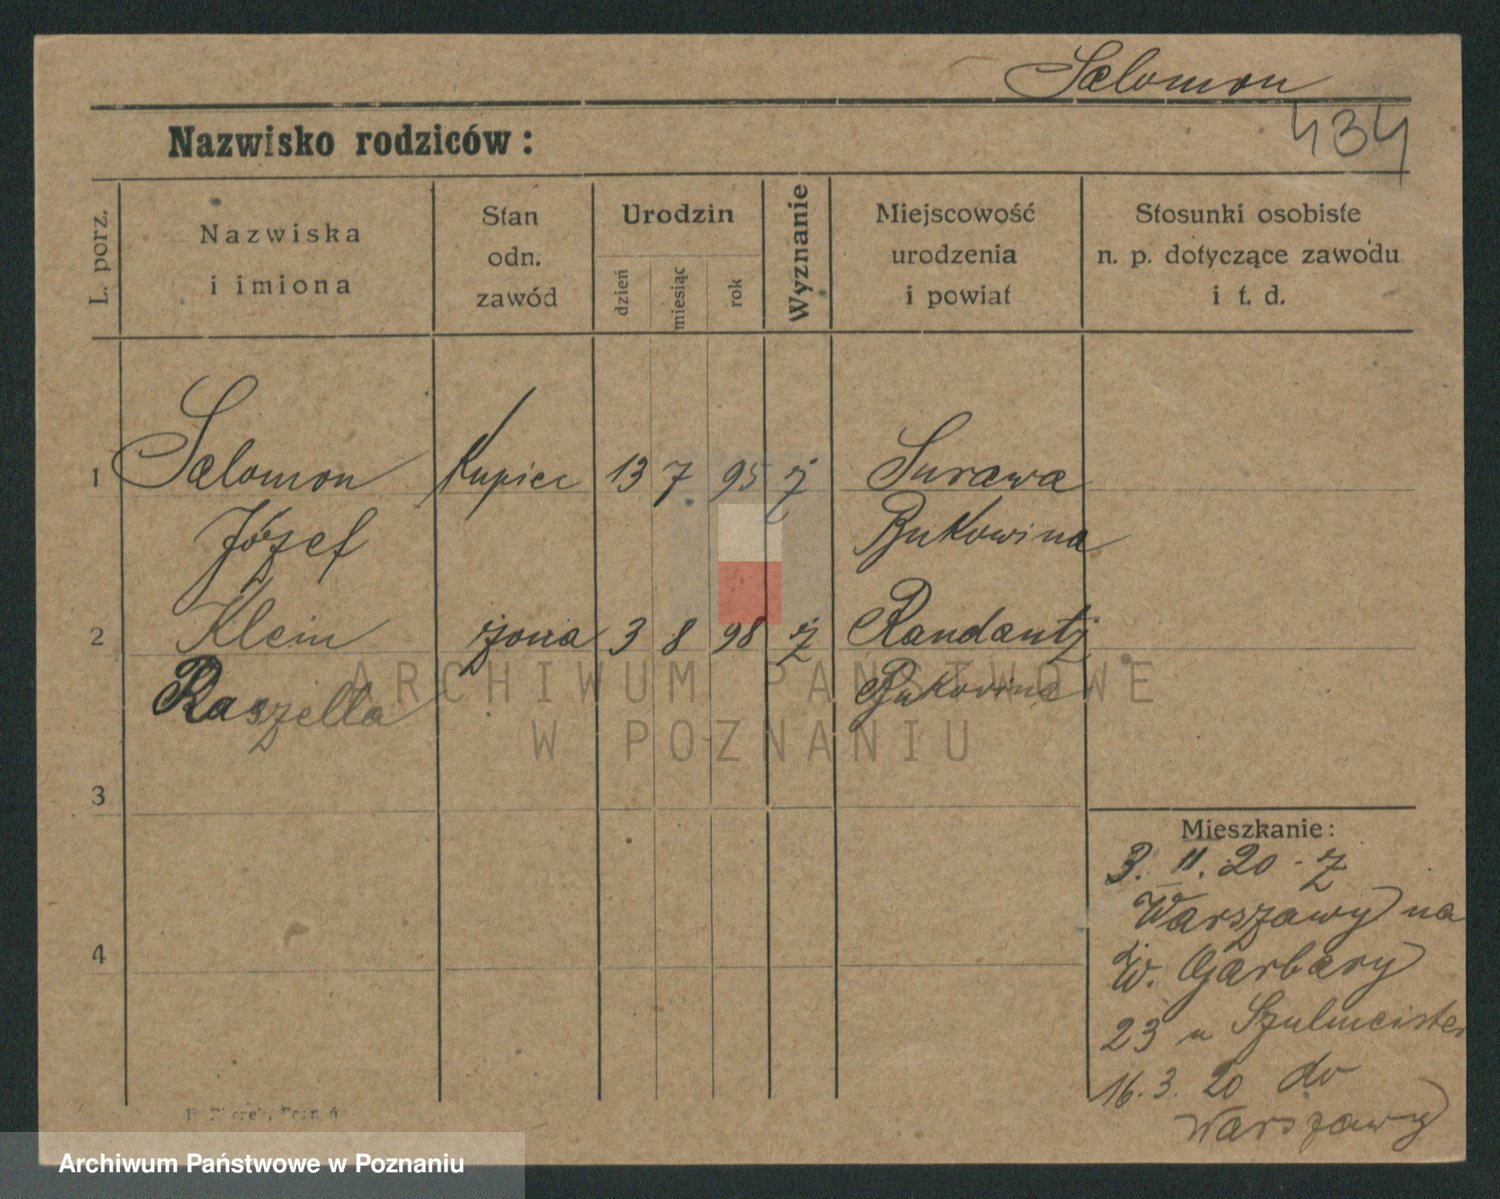 Salomon
434
Nazwisko rodziców:
L. porz.
Nazwiska
i imiona
Stan
odn.
zawód
Urodzin
dzień
miesiąc
rok
Wyznanie
Miejscowość
urodzenia
i powiat
Stosunki osobiste
n. p. dotyczące zawodu
i t. d.
1 Salomon Kupiec 13 7. 95 ż Surawa
Józef Bukowina
2 Klein żona 3 8 98 ż Randautz
Raszella Bukowina
3
4
Mieszkanie:
3. II. 20 - z
Warszawy na
W. Garbary
23 u Szulmeister
16. 3. 20 do
Warszawy
ARCHIWUM PAŃSTWOWE
W POZNANIU
Archiwum Państwowe w Poznaniu